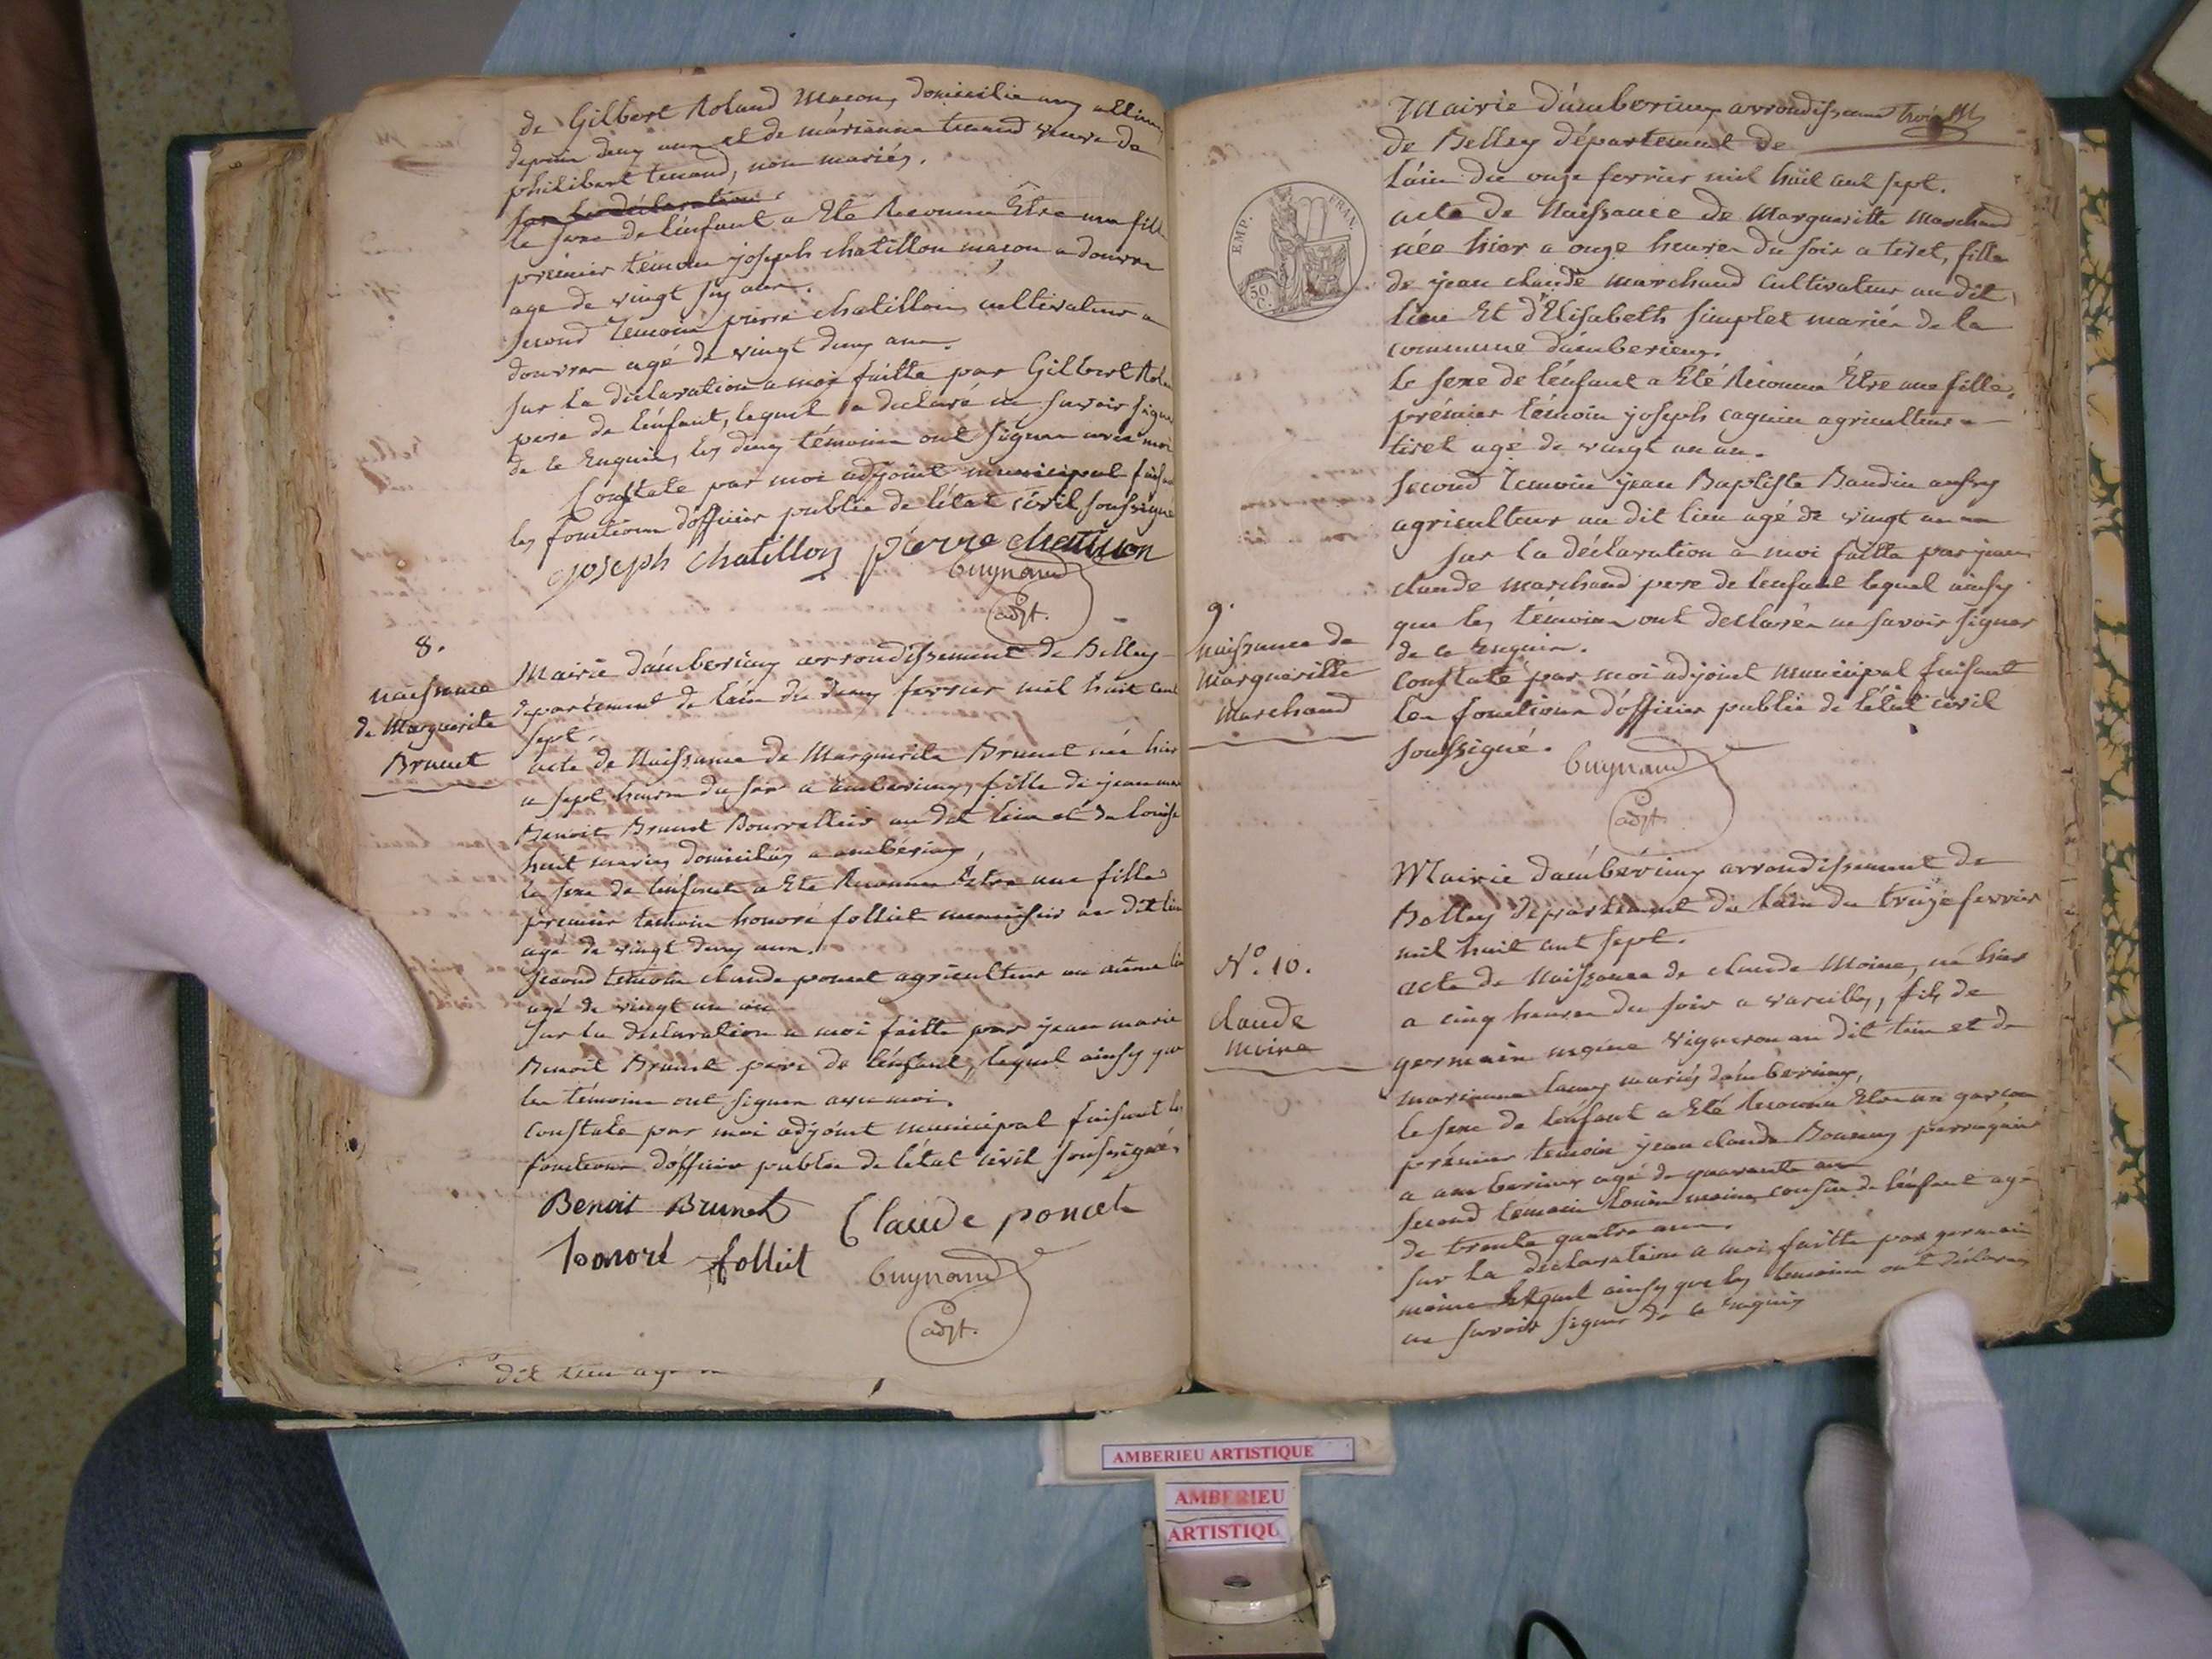 de Gilbert Roland Macon, domicilié
depuis deux ans et de márianne tenand veuve de
philibert tenand, non mariés.
sur la déclaration
le sexe de l'enfant a Eté Reconnu Être une fille
prémier témoin joseph chatillon maçon a douvre
agé de vingt six ans.
second Témoin pierre chatillon cultivateur a
douvres agé de vingt deux ans.
sur la déclaration a moi faitte par Gilbert
pere de l'énfant, lequel a declaré ne savoir signer
de ce Enquis, les deux témoins ont signer avec moi
Constaté par moi adjoint municipal faisant
les fonctions d'officier public de l'état civil soussigné
joseph chatillon pierre chatillon
Guynand
adjt.
8.
naissance
de Marguerite
Brunet
Mairie d'ambérieux arrondissement de Belley
département de l'ain du deux fevrier mil huit cent
sept.
acte de Naissance de Marguerite Brunet née hier
a sept heures du soir a ambérieux, fille de jean marie
Benoit Brunet Bourrellier au dit lieu et de louise
huit mariés domiciliés a ambérieux,
le sexe de l'enfant a Eté Reconnu Être une fille
premier temoin honoré folliet menuisier au dit lieu
agé de vingt deux ans.
second temoin claude poncet agriculteur au même lieu
agé de vingt un an
sur la déclaration a moi faitte par jean marie
Benoit Brunet pere de l'énfant, lequel ainsy que
les témoins ont signer avec moi.
constaté par moi adjoint municipal faisant les
fonctions d'officier public de l'état civil soussigné.
Benoit Brunet Claude poncet
honoré folliet Guynand
adjt.
dit lieu agé
Mairie d'ambérieux arrondissement
de Belley département de
l'ain du onze fevrier mil huit cent sept.
EMP. FRAN.
50 C.
acte de Naissance de Margueritte Marchand
née hier a onze heures du soir a tiret, fille
de jean claude marchand Cultivateur au dit
lieu Et d'Elisabeth simplet mariés de la
commune d'ambérieux.
le sexe de l'énfant a Eté Reconnu Être une fille,
prémier témoin joseph cagnin agriculteur a
tiret agé de vingt un an.
second Temoin jean Baptiste Baudin aussy
agriculteur au dit lieu agé de vingt un an
sur la déclaration a moi faitte par jean
claude marchand pere de l'enfant lequel ainsy
que les témoins ont declarés ne savoir signer
de ce Enquis.
constaté par moi adjoint municipal faisant
les fonctions d'officier public de l'état civil
soussigné. Guynand
adjt.
9.
naissance de
Margueritte
Marchand
Mairie d'ambérieux arrondissement de
Belley département de l'ain du treize fevrier
mil huit cent sept.
No. 10.
Claude
Moine
acte de Naissance de claude Moine, né hier
a cinq heures du soir a vareilles, fils de
germain moine Vigneron au dit lieu et de
marianne mariés d'ambérieux,
le sexe de l'énfant a Eté Reconnu Etre un garçon
prémier temoin jean claude perruquier
a amberieux agé de quarante ans
second temoin louis moine cousin de l'énfant agé
de trente quatre ans.
sur la déclaration a moi faitte par germain
moine lequel ainsy que les temoins ont déclarés
ne savoir signer de ce enquis
AMBERIEU ARTISTIQUE
AMBERIEU
ARTISTIQU